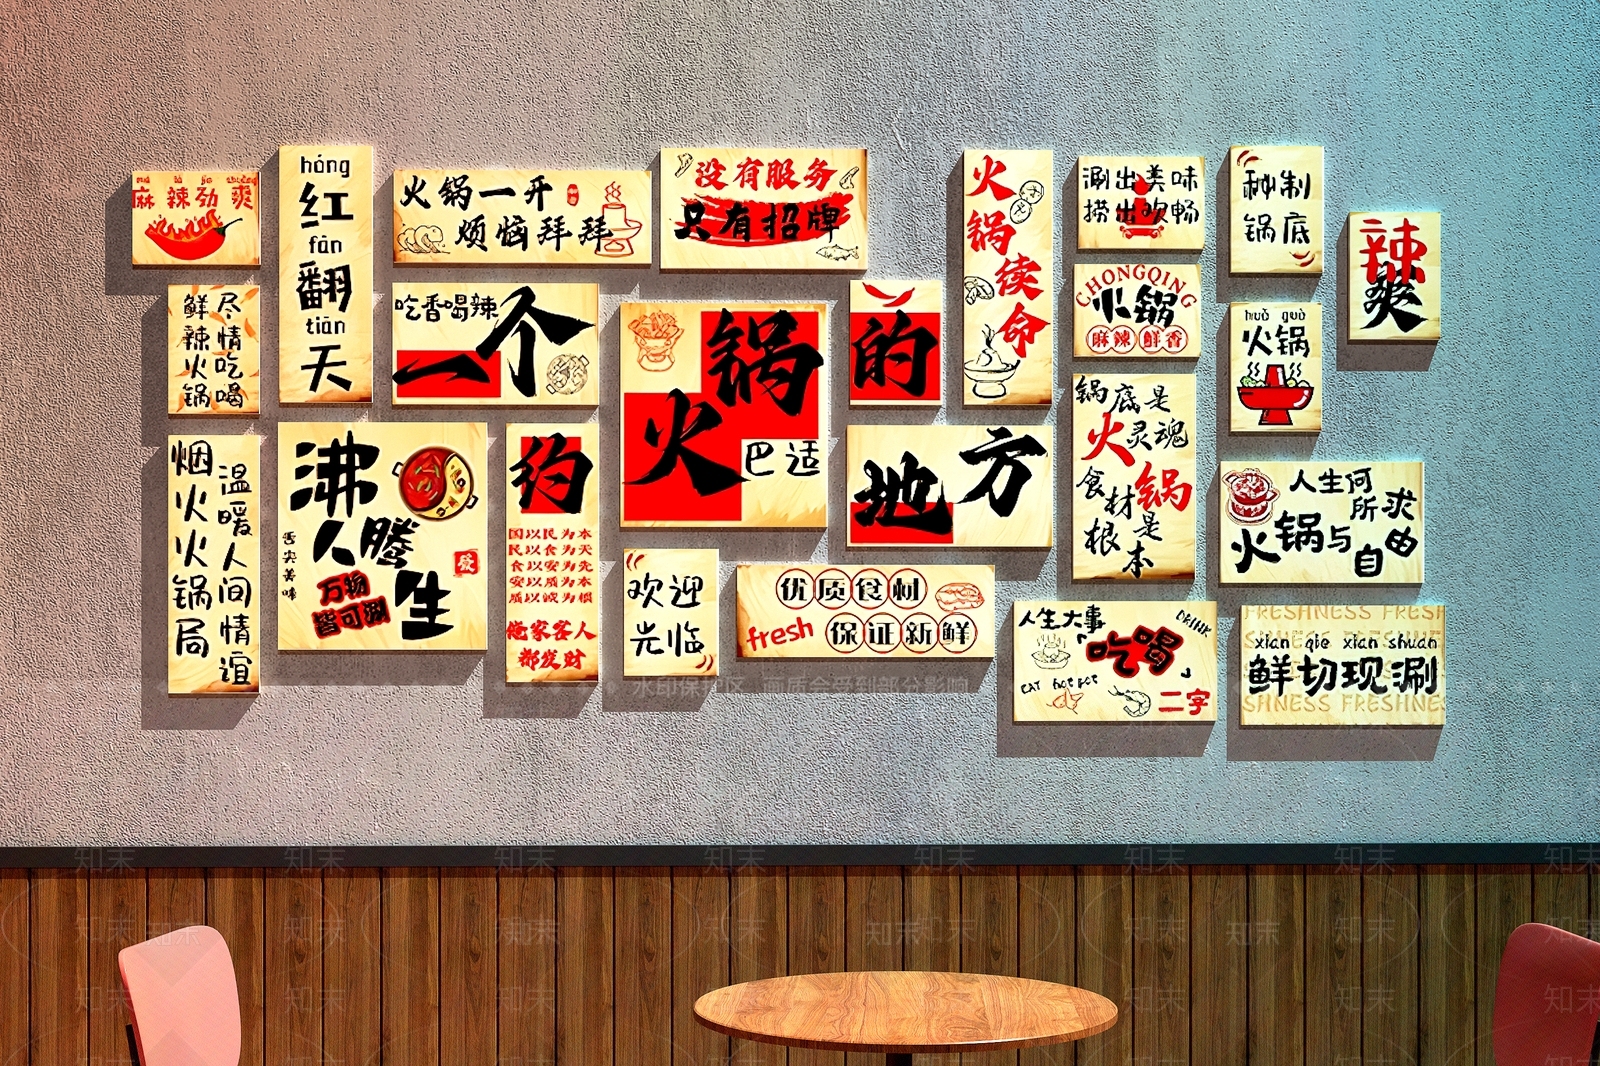 má là jìn shuǎng
麻辣劲爽
hóng
红
fān
翻
tiān
天
火锅一开
烦恼拜拜
没有服务
只有招牌
火锅续命
涮出美味
捞出欢畅
秘制
锅底
辣爽
鲜辣火锅
尽情吃喝
吃香喝辣
一个
火锅
巴适
的
CHONGQING
火锅
麻辣 鲜香
huǒ guō
火锅
烟火火锅局
温暖人间情谊
沸
人腾
生
万物
皆可涮
舌尖美味
發
约
国以民为本
民以食为天
食以安为先
安以质为本
质以诚为根
俺家客人
都发财
欢迎
光临
优质食材
fresh 保证新鲜
地方
锅底是
火灵魂
食材锅
根是
本
人生何
所求
火锅与
自由
人生大事
DRINK
「吃喝」
EAT hot pot
二字
FRESHNESS FRESH
xian qie xian shuan
鲜切现涮
SHNESS FRESHNES
水印保护区 画质会受到部分影响
知末